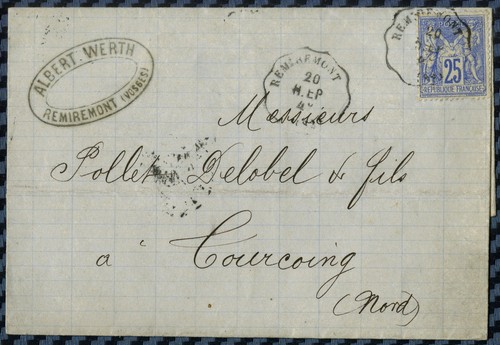 ALBERT. WERTH
REMIREMONT (VOSGES)
REMIREMONT
20
REMIREMONT
20
25
REPUBLIQUE FRANÇAISE
Messieurs
Pollet Delobel & fils
à Tourcoing
(Nord)